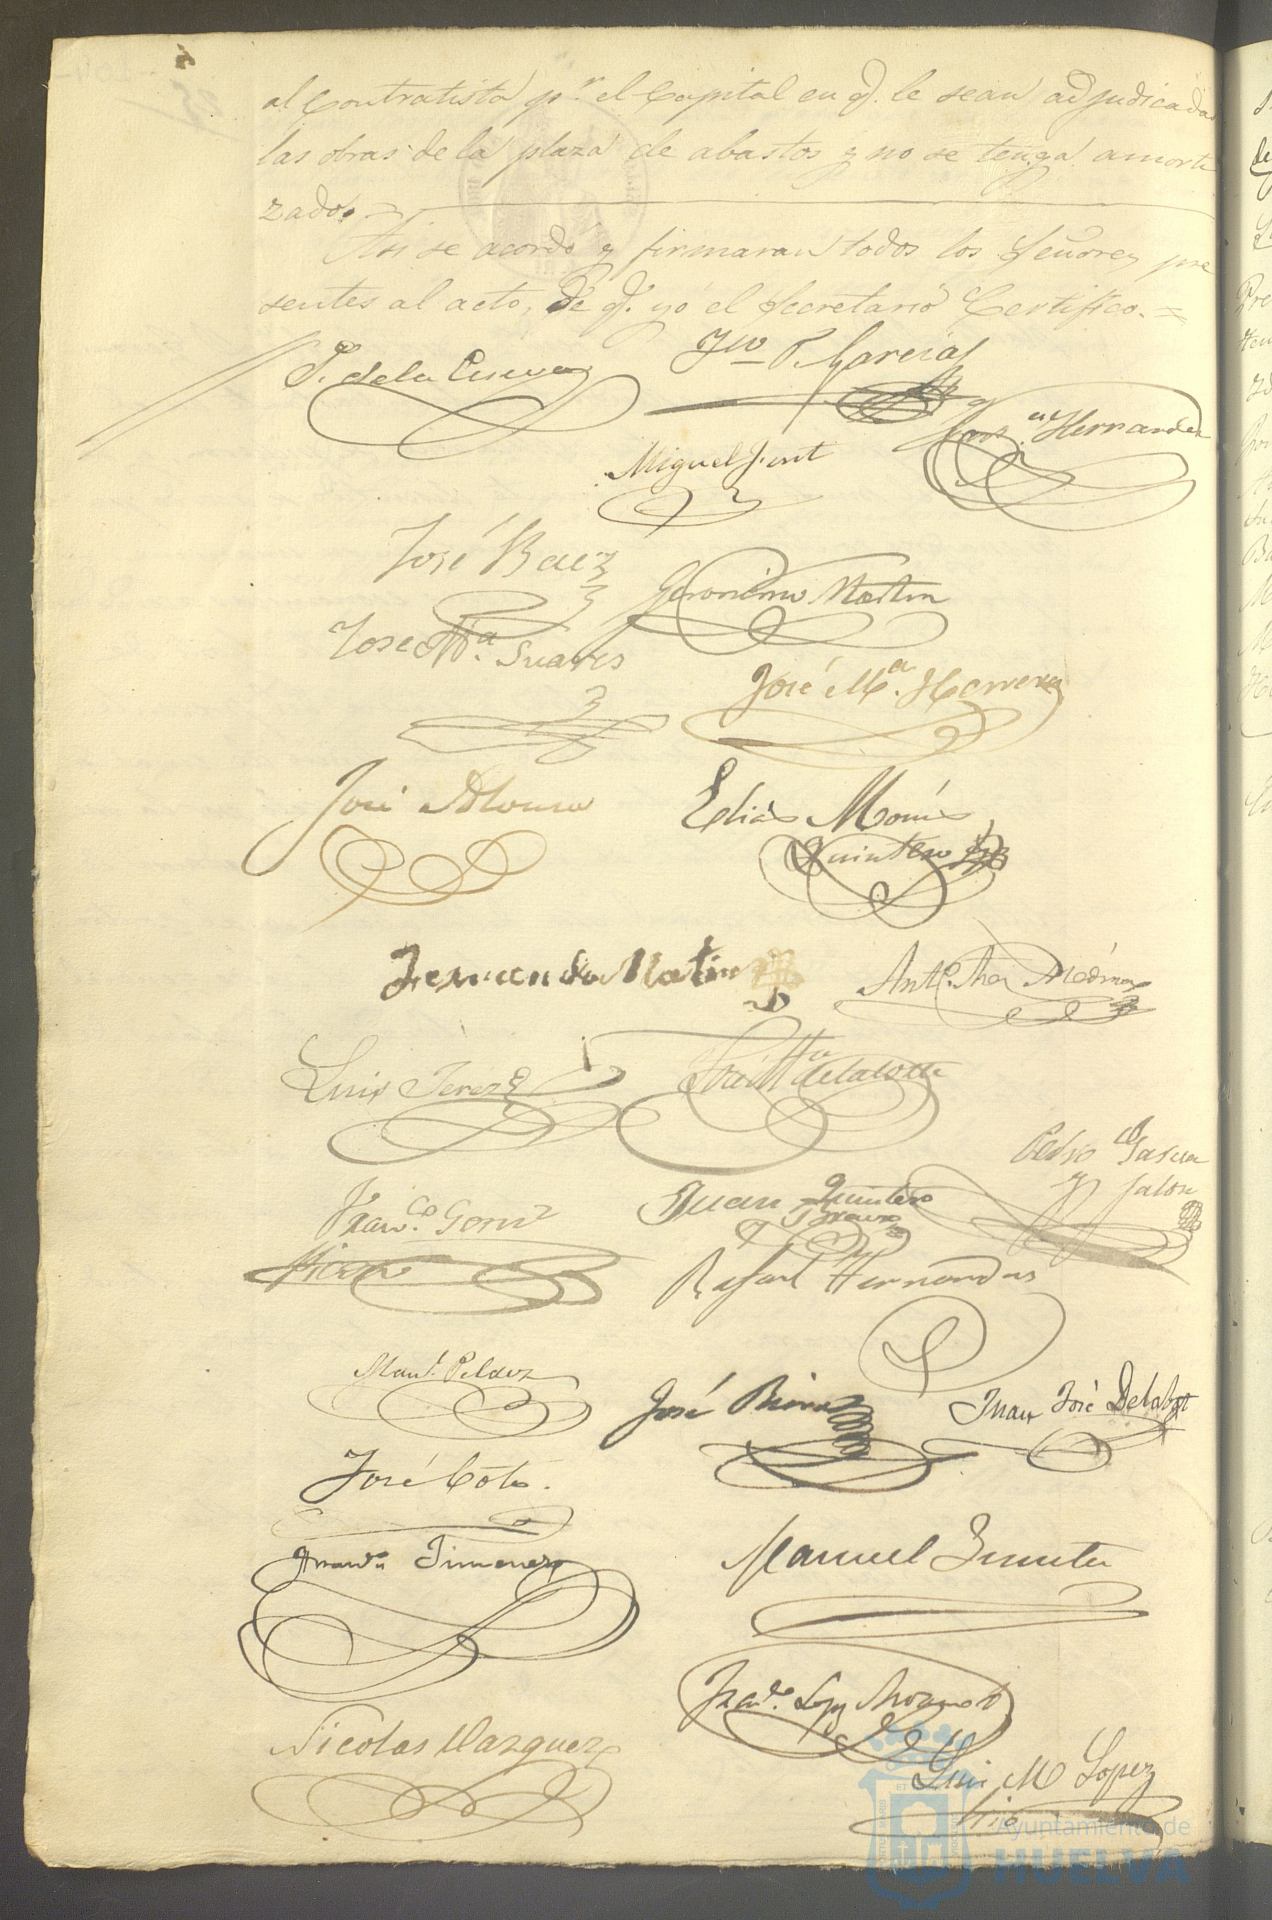 al Contratista pr. el Capital en q. le sean adjudicadas
las obras de la plaza de abastos y no se tenga amorti
zados.
Asi se acordó y firmaran todos los Señores pre
sentes al acto, de q. yo el Secretario Certifico.=
P. de la Cueva
Fco P. Garcia
Hernandez
Miguel
José Baez
Geronimo Martin
Jose Ma. Suares
José Ma. Herrera
José Alonso
Elias
Quintero
Fernando Martin
Medina
Luis Perez
José Ma delatorre
Pedro Garcia
y Jalon
Franco. Gomz
Juan Quintero
Rafael Hernandes
Manl. Pelaez
José
Juan José
José Coto.
Jimenez
Manuel
Nicolas Vazquez
Luis M Lopez
Srio
Ayuntamiento de
HUELVA